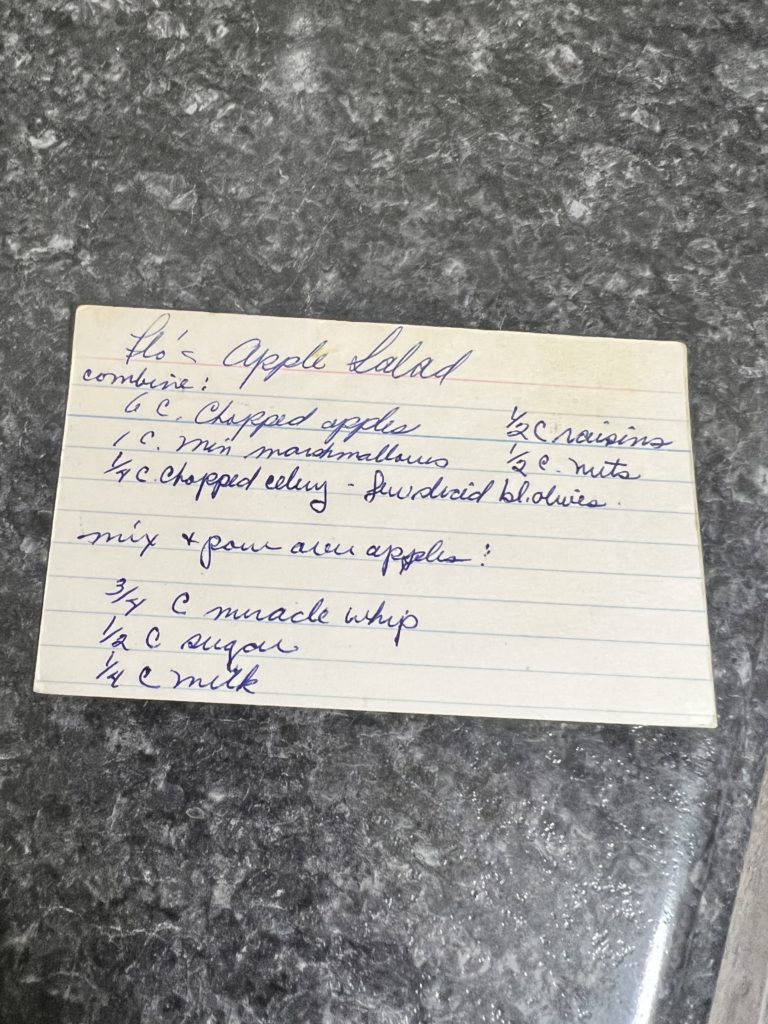 Flo's Apple Salad
combine:
6 C. Chopped apples 1/2 C raisins
1 C. min marshmallows 1/2 C. nuts
1/4 C. Chopped celery - few sliced bl. olives.
mix + pour over apples:
3/4 C miracle whip
1/2 C sugar
1/4 C milk